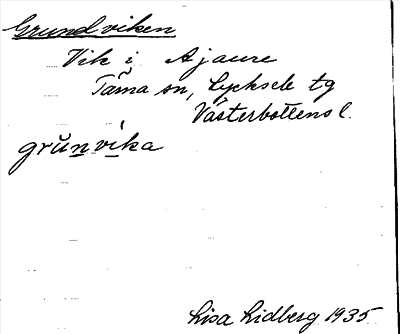 Grundviken
Vik i Ajaure
Tärna sn, Lycksele tg
Västerbottens l.
grŭnvíka
Lisa Lidberg 1935